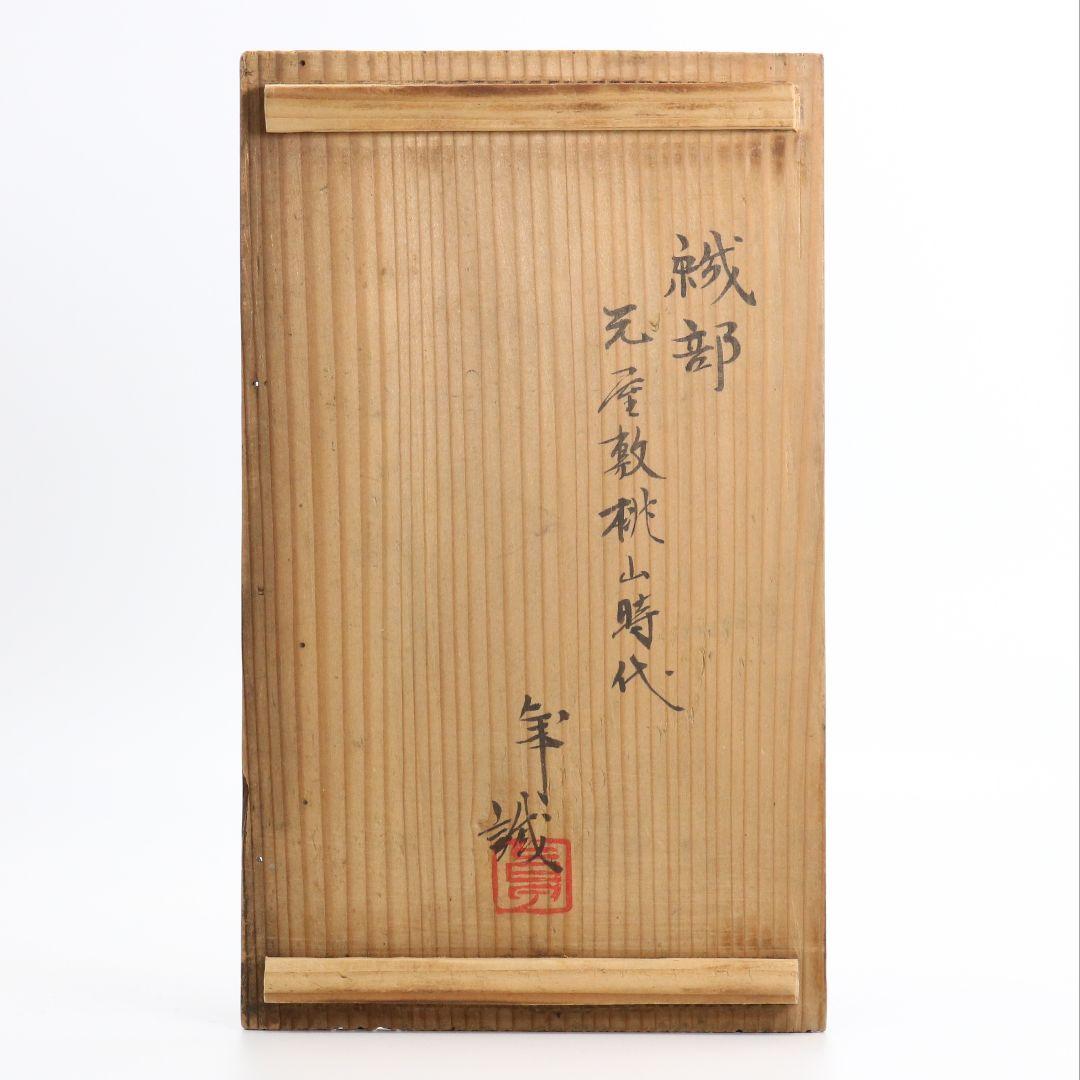 織部
元屋敷桃山時代
年
誠